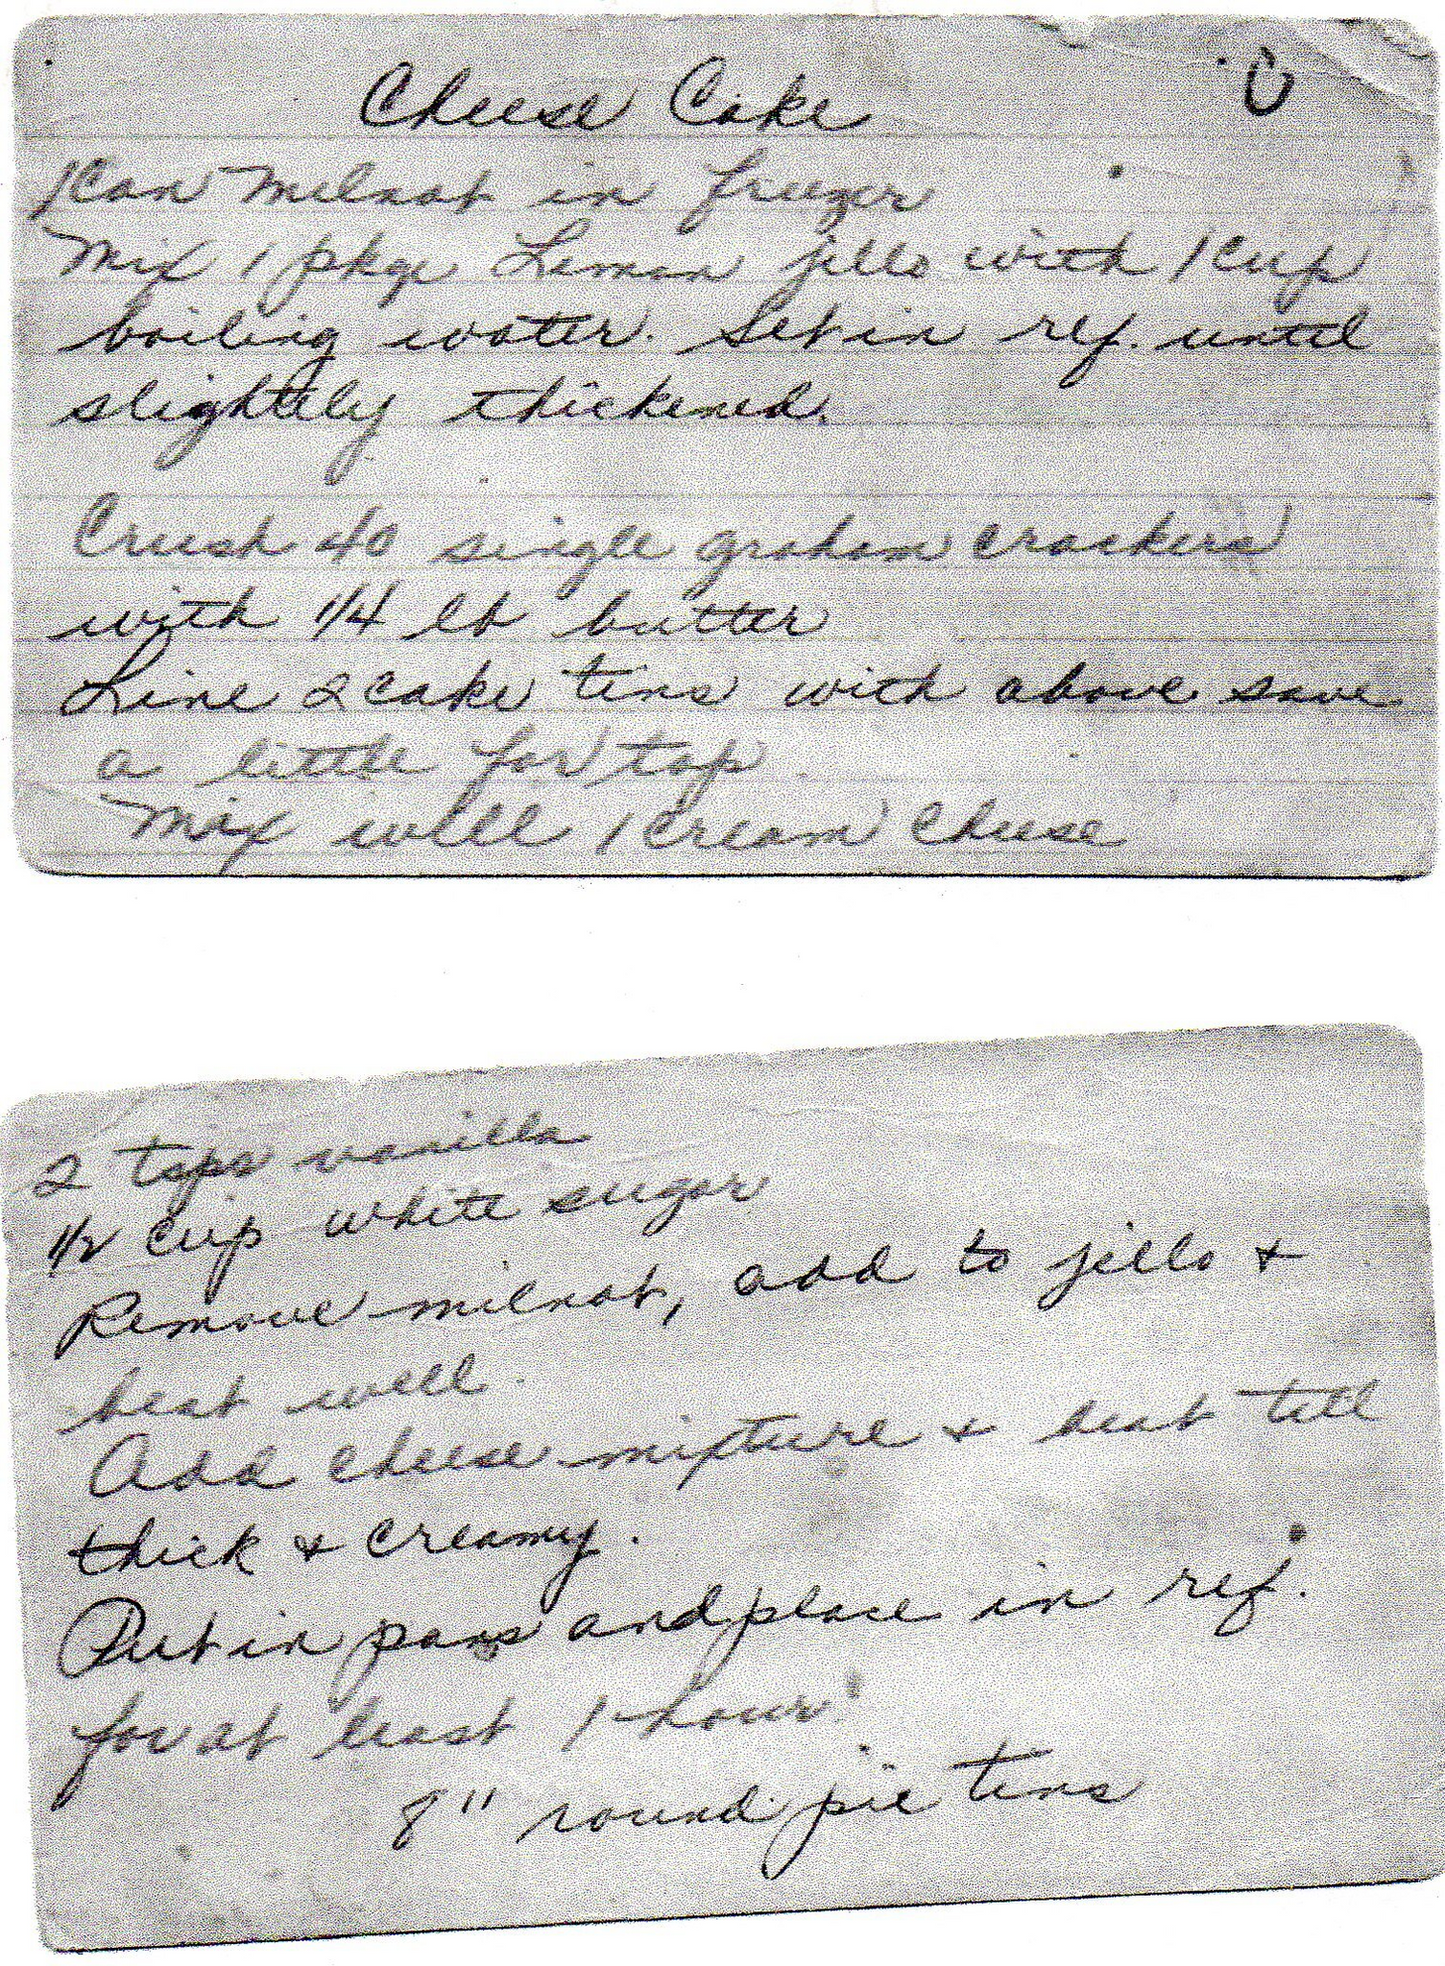 Cheese Cake
1 Can Milnot in freezer
Mix 1 pkge Lemon jello with 1 cup
boiling water. Set in ref. until
slightly thickened.
Crush 40 single graham crackers
with 1/4 lb butter
Line 2 cake tins with above save
a little for top
Mix well 1 cream cheese
2 tsps vanilla
1/2 cup white sugar
Remove milnot, add to jello +
beat well.
Add cheese mixture + beat till
thick + creamy.
Put in pans and place in ref.
for at least 1 hour
8" round pie tins